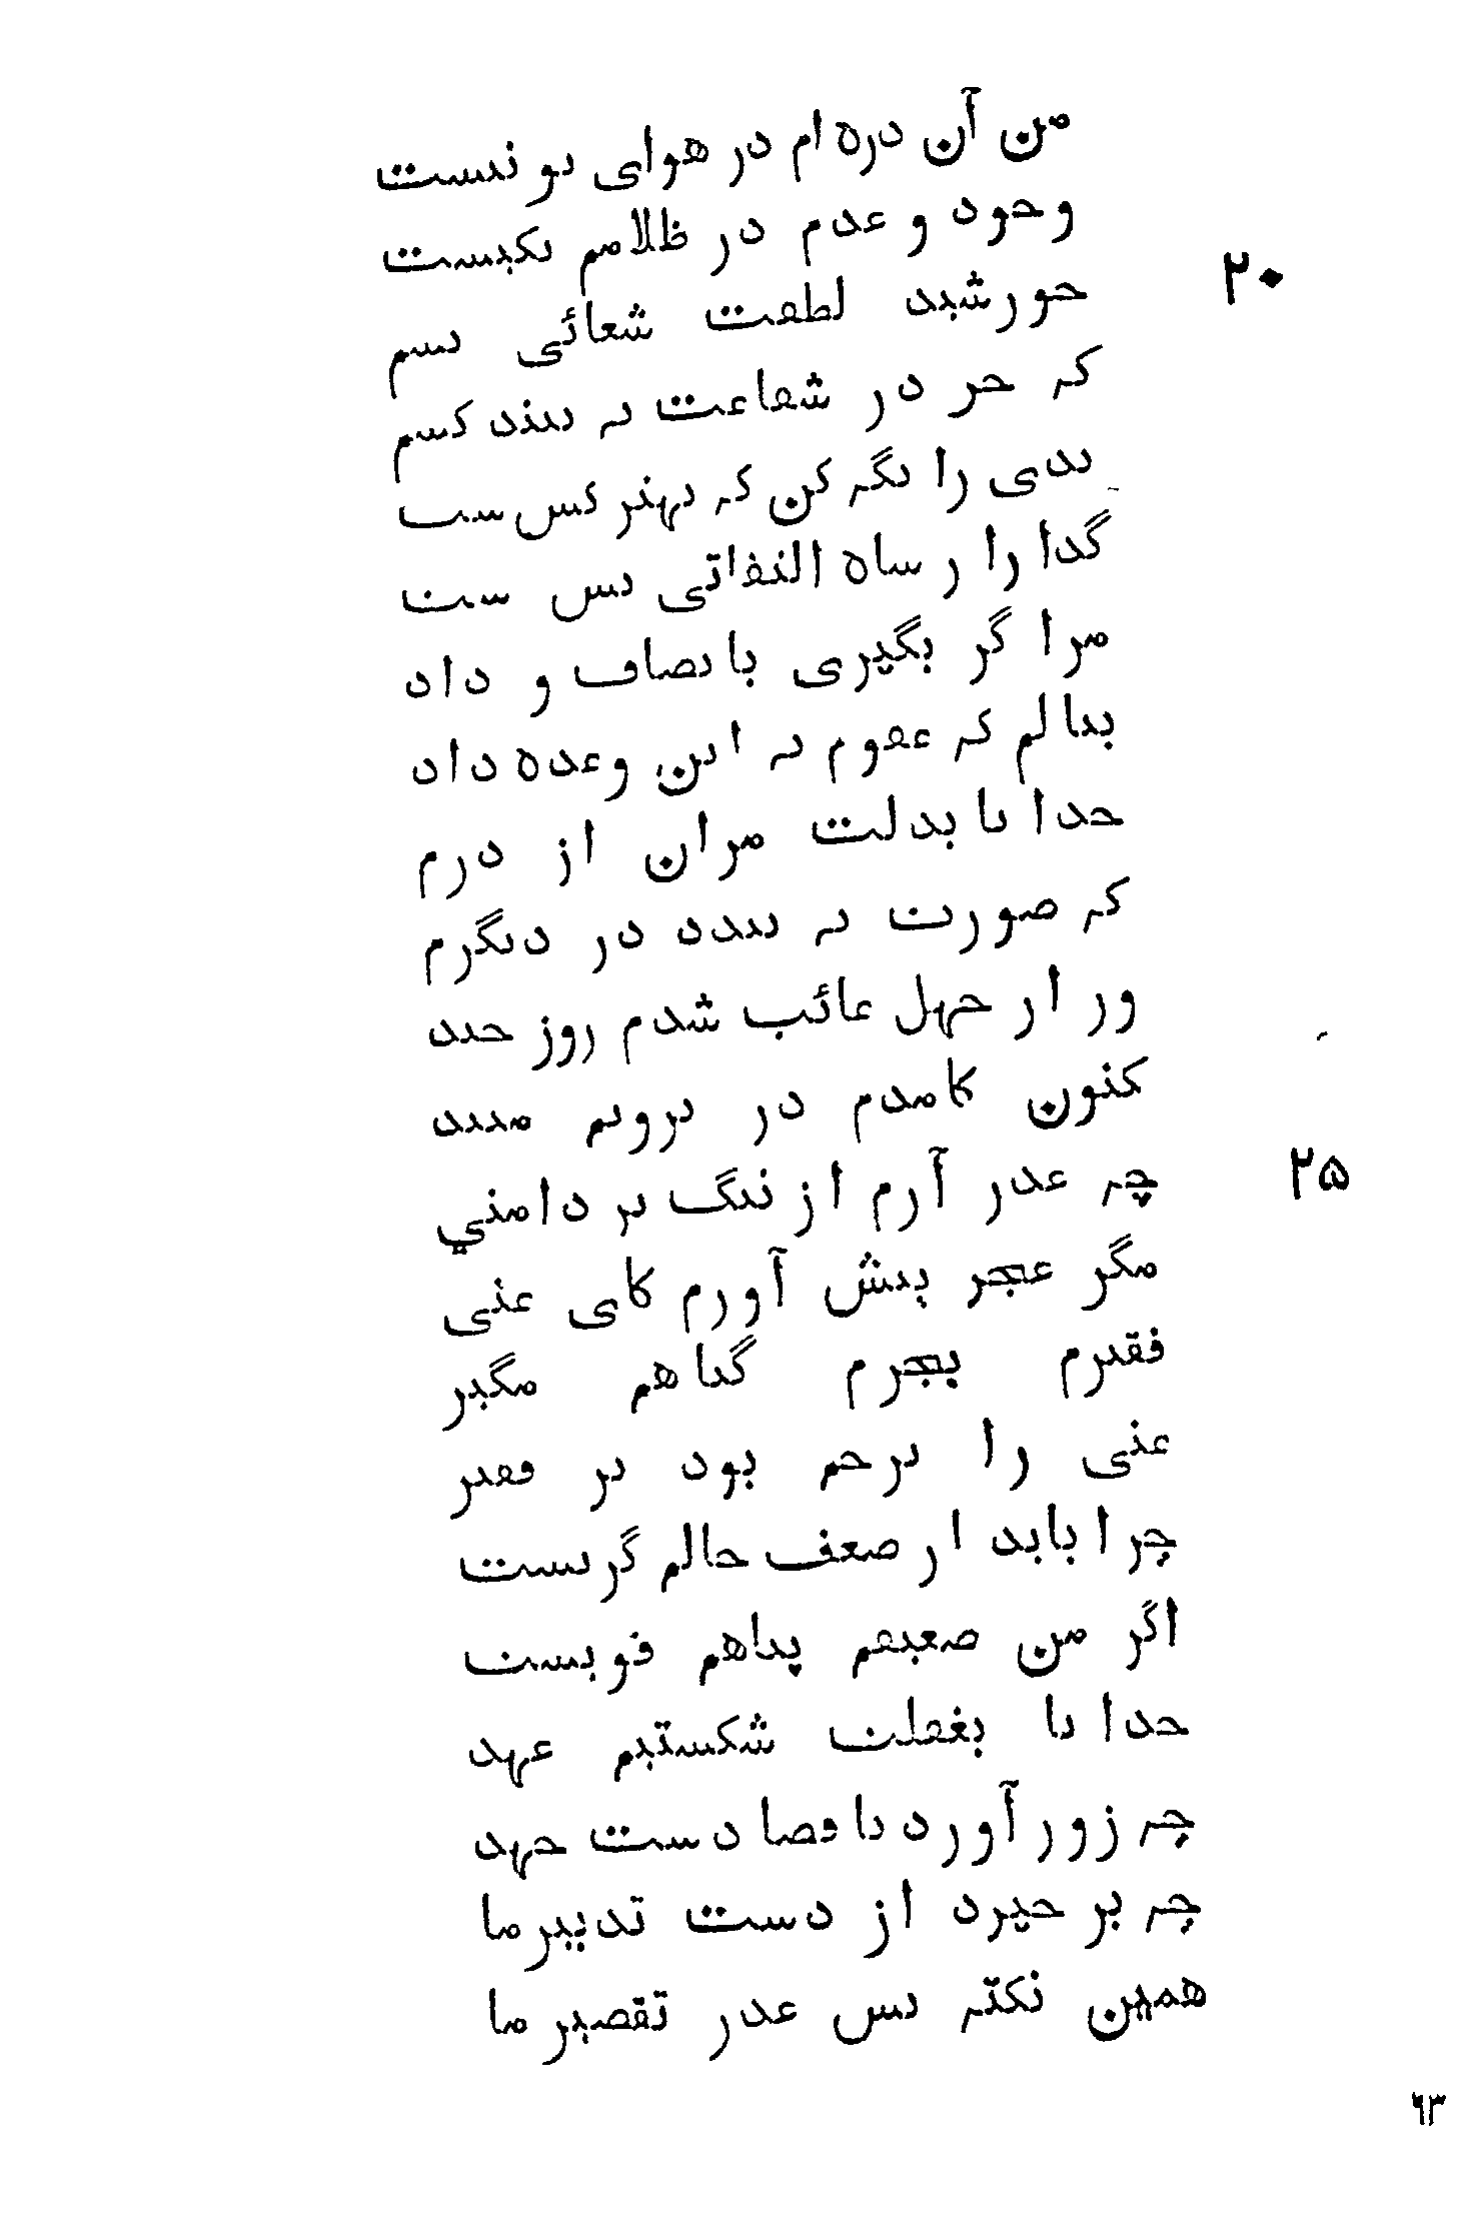 من آن ذره ام در هوای تو نیست
وجود و عدم در ظلامم یکیست
۲۰
خورشید لطفت شعائی بسم
که جز در شعاعت نه بیند کسم
بدی را نگه کن که بهتر کس ست
گدا را ز شاه التفاتی بس ست
مرا گر بگیری بانصاف و داد
بنالم که عفوم نه این وعده داد
خدا یا بذلت مران از درم
که صورت نه بندد در دیگرم
ور از جهل غائب شدم روز چند
کنون کامدم در برویم مبند
۲۵
چه عذر آرم از ننگ تر دامنی
مگر عجز پیش آورم کای غنی
فقیرم بجرم گناهم مگیر
غنی را ترحم بود بر فقیر
چرا باید از ضعف حالم گریست
اگر من ضعیفم پناهم قویست
خدا یا بغفلت شکستیم عهد
چه زور آورد با قضا دست جهد
چه بر خیزد از دست تدبیر ما
همین نکته بس عذر تقصیر ما
۶۳